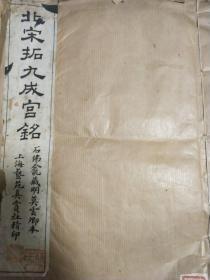 北宋拓九成宮銘
石佛盦藏明吳寬𦢊本
上海藝苑真賞社精印